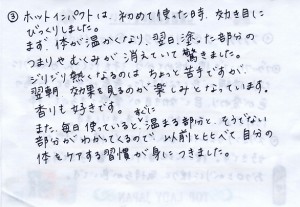 ③ ホットインパクトは、初めて使った時、効き目に
びっくりしました。
まず体が温かくなり、翌日、塗った部分の
つまりやむくみが消えていて驚きました。
ジリジリ熱くなるのはちょっと苦手ですが、
翌朝効果を見るのが楽しみとなっています。
香りも好きです。
また、毎日使っているとすぐに温まる部分と、そうでない
部分がわかってくるので以前とヒベて自分の
体をケアする習慣が身につきました。